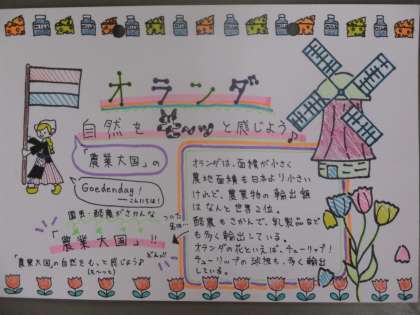 オランダ
自然をも〜っと感じよう♪
「農業大国」の
Goedendag!
―こんにちは!
園芸・酪農がさかんな
「農業大国」!!
「農業大国」の自然をもっと感じよう♪
オランダは、面積が小さく
農地面積も日本より小さい
けれど、農業物の輸出額
はなんと世界2位。
酪農もさかんで、乳製品など
も多く輸出している。
オランダの花といえば、チューリップ!
チューリップの球根も、多く輸出
している。